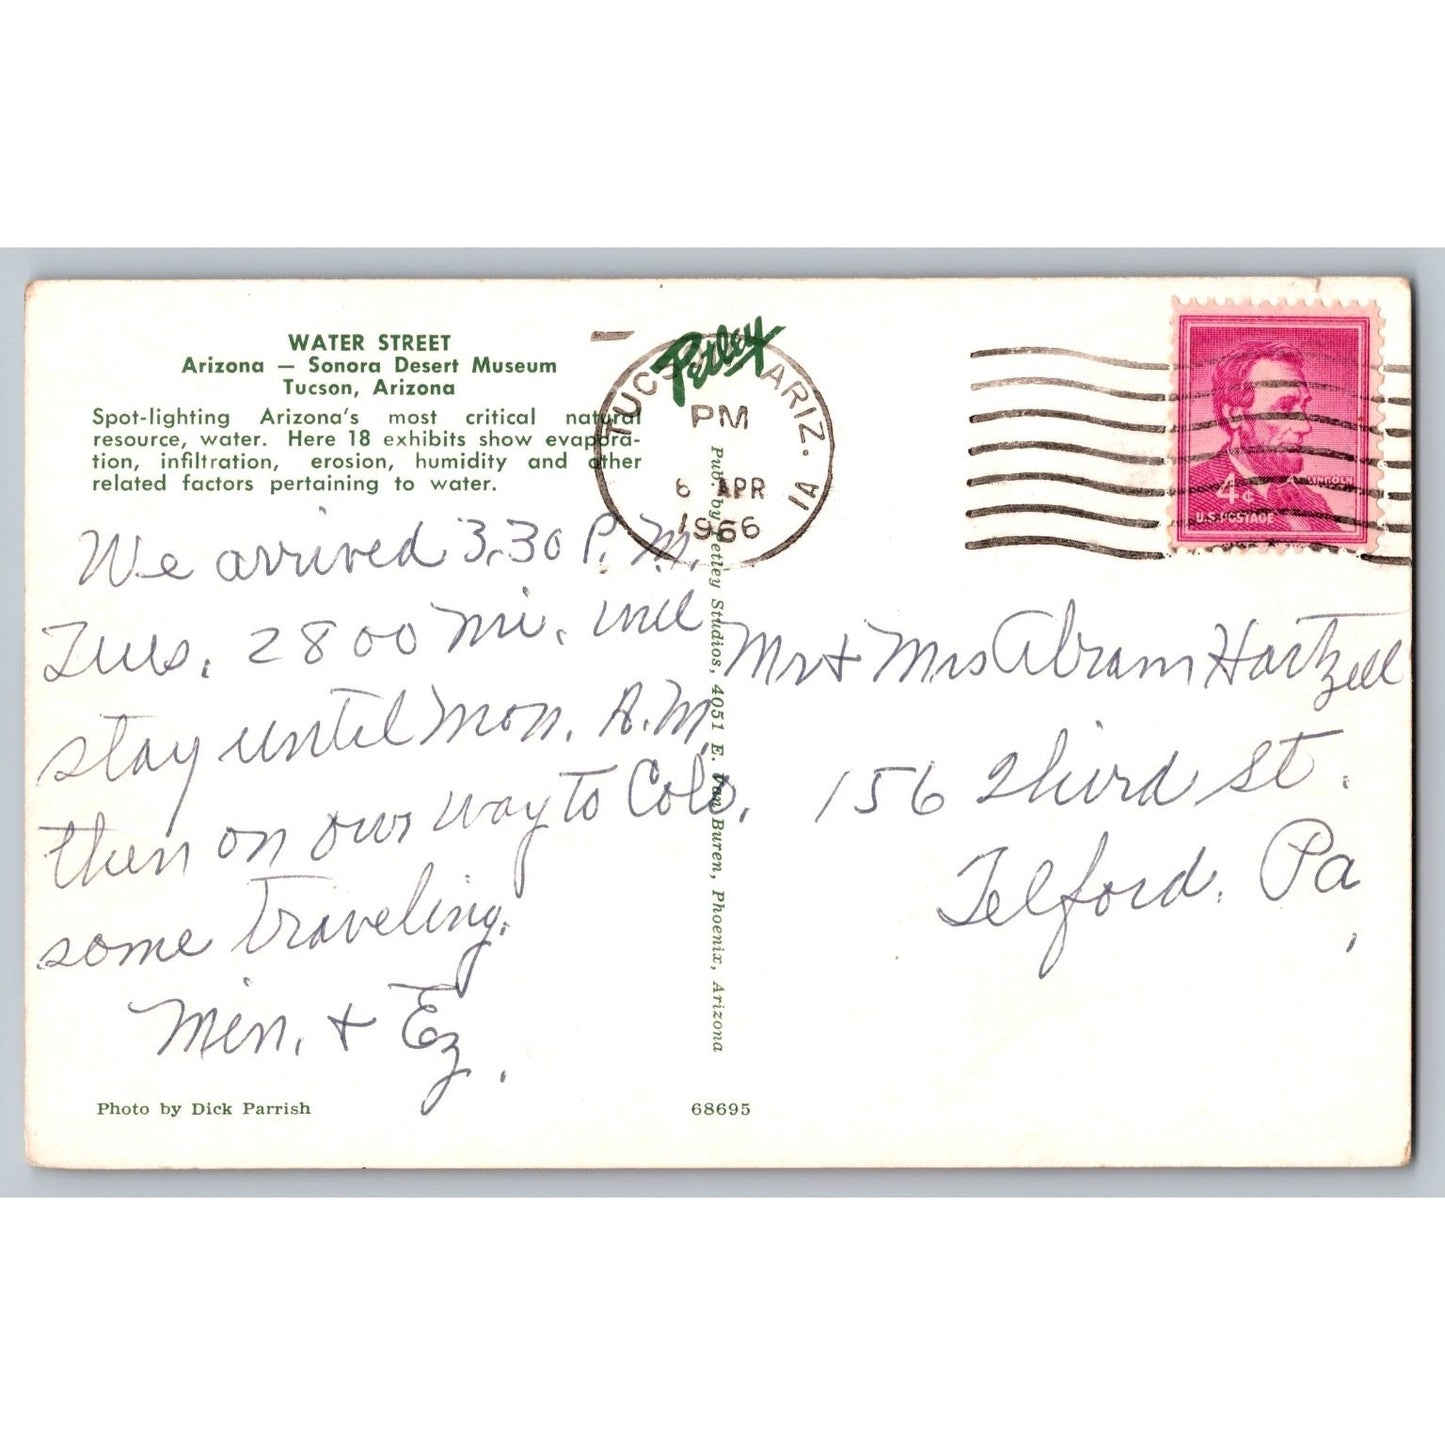 WATER STREET
Arizona — Sonora Desert Museum
Tucson, Arizona
Spot-lighting Arizona's most critical natural
resource, water. Here 18 exhibits show evapora-
tion, infiltration, erosion, humidity and other
related factors pertaining to water.
We arrived 3.30 P.M.
Tues. 2800 mi. will
stay until Mon. A.M.
then on our way to Colo.
some traveling.
Min. + Ez.
Photo by Dick Parrish
Petley
Pub. by Petley Studios, 4051 E. Van Buren, Phoenix, Arizona
68695
TUCSON, ARIZ. 1A
PM
6 APR
1966
LINCOLN
4¢
U.S. POSTAGE
Mr + Mrs Abram Hartzell
156 Third St.
Telford, Pa.